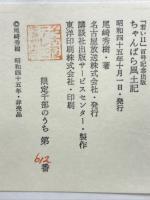 「若い11」百号記念出版
ちゃんばら風土記
昭和四十五年十月一日・発行
尾崎秀樹・著
名古屋放送株式会社・発行
講談社出版サービスセンター・製作
東洋印刷株式会社・印刷
限定千部のうち 第
612
番
©尾崎秀樹 昭和四十五年・非売品